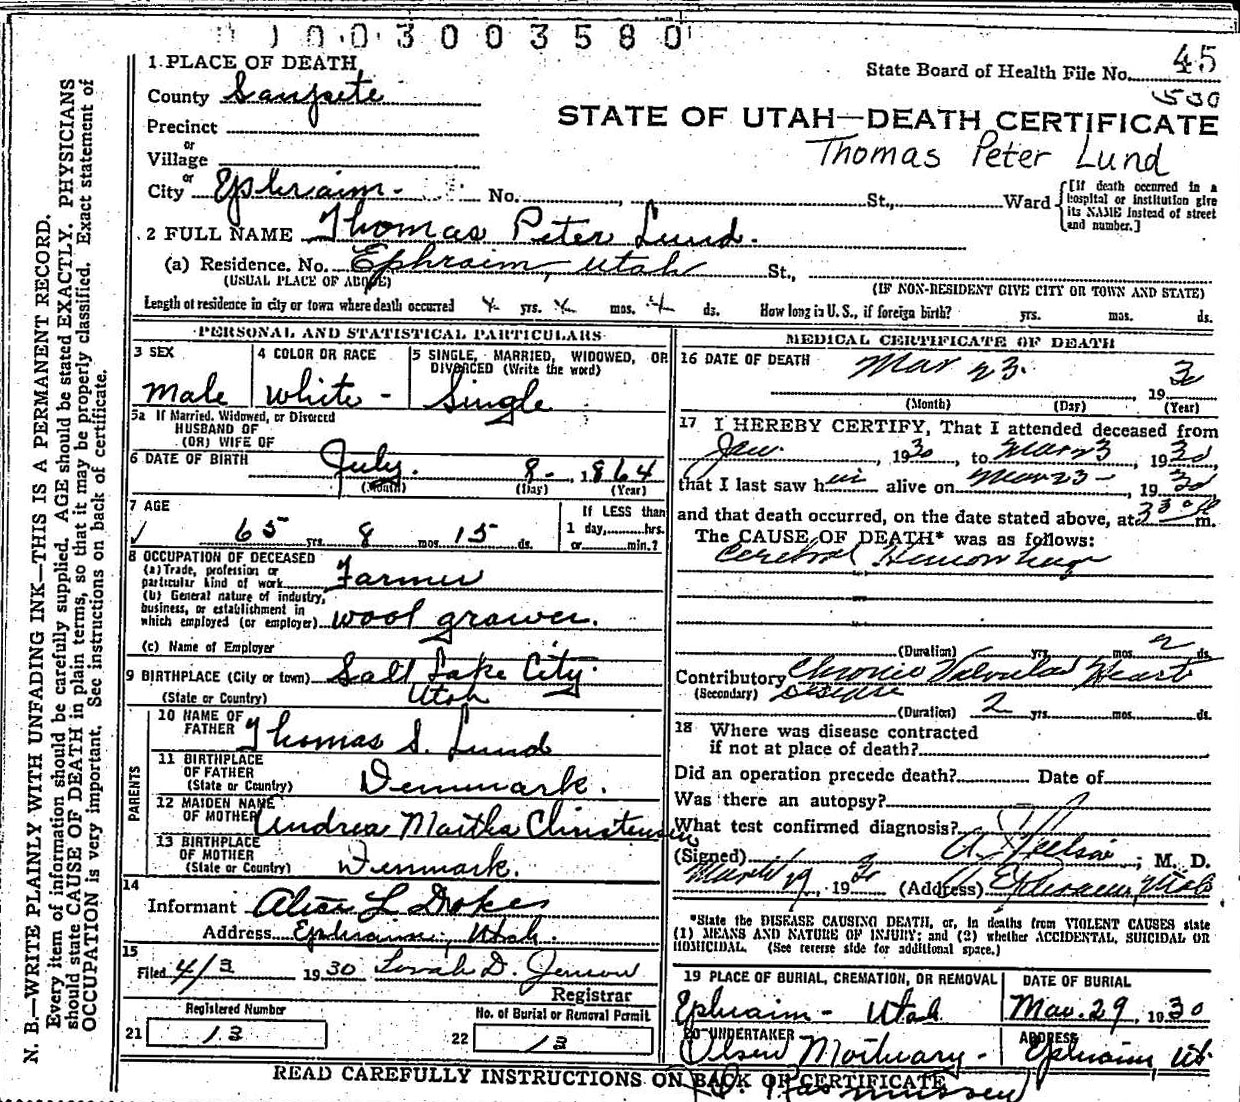 1003003580
State Board of Health File No. 45
530
STATE OF UTAH—DEATH CERTIFICATE
Thomas Peter Lund
1 PLACE OF DEATH
County Sanpete
Precinct
or
Village
or
City Ephraim- No. , St., Ward {[If death occurred in a hospital or institution give its NAME instead of street and number.]
2 FULL NAME Thomas Peter Lund.
(a) Residence. No. Ephraim, Utah St.,
(USUAL PLACE OF ABODE) (IF NON-RESIDENT GIVE CITY OR TOWN AND STATE)
Length of residence in city or town where death occurred yrs. mos. ds. How long in U. S., if foreign birth? yrs. mos. ds.
PERSONAL AND STATISTICAL PARTICULARS
3 SEX
Male
4 COLOR OR RACE
White -
5 SINGLE, MARRIED, WIDOWED, OR
DIVORCED (Write the word)
Single
5a If Married, Widowed, or Divorced
HUSBAND OF
(OR) WIFE OF
6 DATE OF BIRTH July. 8- , 1864
(Month) (Day) (Year)
7 AGE
65 yrs. 8 mos. 15 ds.
If LESS than
1 day, hrs.
or min.?
8 OCCUPATION OF DECEASED
(a) Trade, profession or
particular kind of work Farmer
(b) General nature of industry,
business, or establishment in
which employed (or employer) wool grower.
(c) Name of Employer
9 BIRTHPLACE (City or town) Salt Lake City
(State or Country) Utah
PARENTS
10 NAME OF
FATHER Thomas S. Lund
11 BIRTHPLACE
OF FATHER
(State or Country) Denmark.
12 MAIDEN NAME
OF MOTHER Andrea Martha Christensen
13 BIRTHPLACE
OF MOTHER
(State or Country) Denmark.
14
Informant Alice L Dokes
Address Ephraim, Utah
15
Filed 4/3 1930 Sorah D. Jenson
Registrar
Registered Number
21 13
No. of Burial or Removal Permit
22 13
MEDICAL CERTIFICATE OF DEATH
16 DATE OF DEATH Mar 23. 1930
(Month) (Day) (Year)
17 I HEREBY CERTIFY, That I attended deceased from
Jan. , 1930, to Mar 23, 1930,
that I last saw him alive on Mar 23-, 1930
and that death occurred, on the date stated above, at 330 P m.
The CAUSE OF DEATH* was as follows:
Cerebral Hemorrhage
(Duration) yrs. mos. 2 ds.
Contributory Chronic Valvular Heart
(Secondary) Disease
(Duration) 2 yrs. mos. ds.
18 Where was disease contracted
if not at place of death?
Did an operation precede death? Date of
Was there an autopsy?
What test confirmed diagnosis?
(Signed) A. J. Nielson ; M. D.
March 29, 1930 (Address) Ephraim, Utah
*State the DISEASE CAUSING DEATH, or, in deaths from VIOLENT CAUSES state
(1) MEANS AND NATURE OF INJURY; and (2) whether ACCIDENTAL, SUICIDAL OR
HOMICIDAL. (See reverse side for additional space.)
19 PLACE OF BURIAL, CREMATION, OR REMOVAL
Ephraim - Utah
DATE OF BURIAL
Mar. 29, 1930
20 UNDERTAKER
Olsen Mortuary-
Rasmussen
ADDRESS
Ephraim, Ut.
READ CAREFULLY INSTRUCTIONS ON BACK OF CERTIFICATE
N. B.—WRITE PLAINLY WITH UNFADING INK—THIS IS A PERMANENT RECORD.
Every item of information should be carefully supplied. AGE should be stated EXACTLY. PHYSICIANS
should state CAUSE OF DEATH in plain terms, so that it may be properly classified. Exact statement of
OCCUPATION is very important. See instructions on back of certificate.